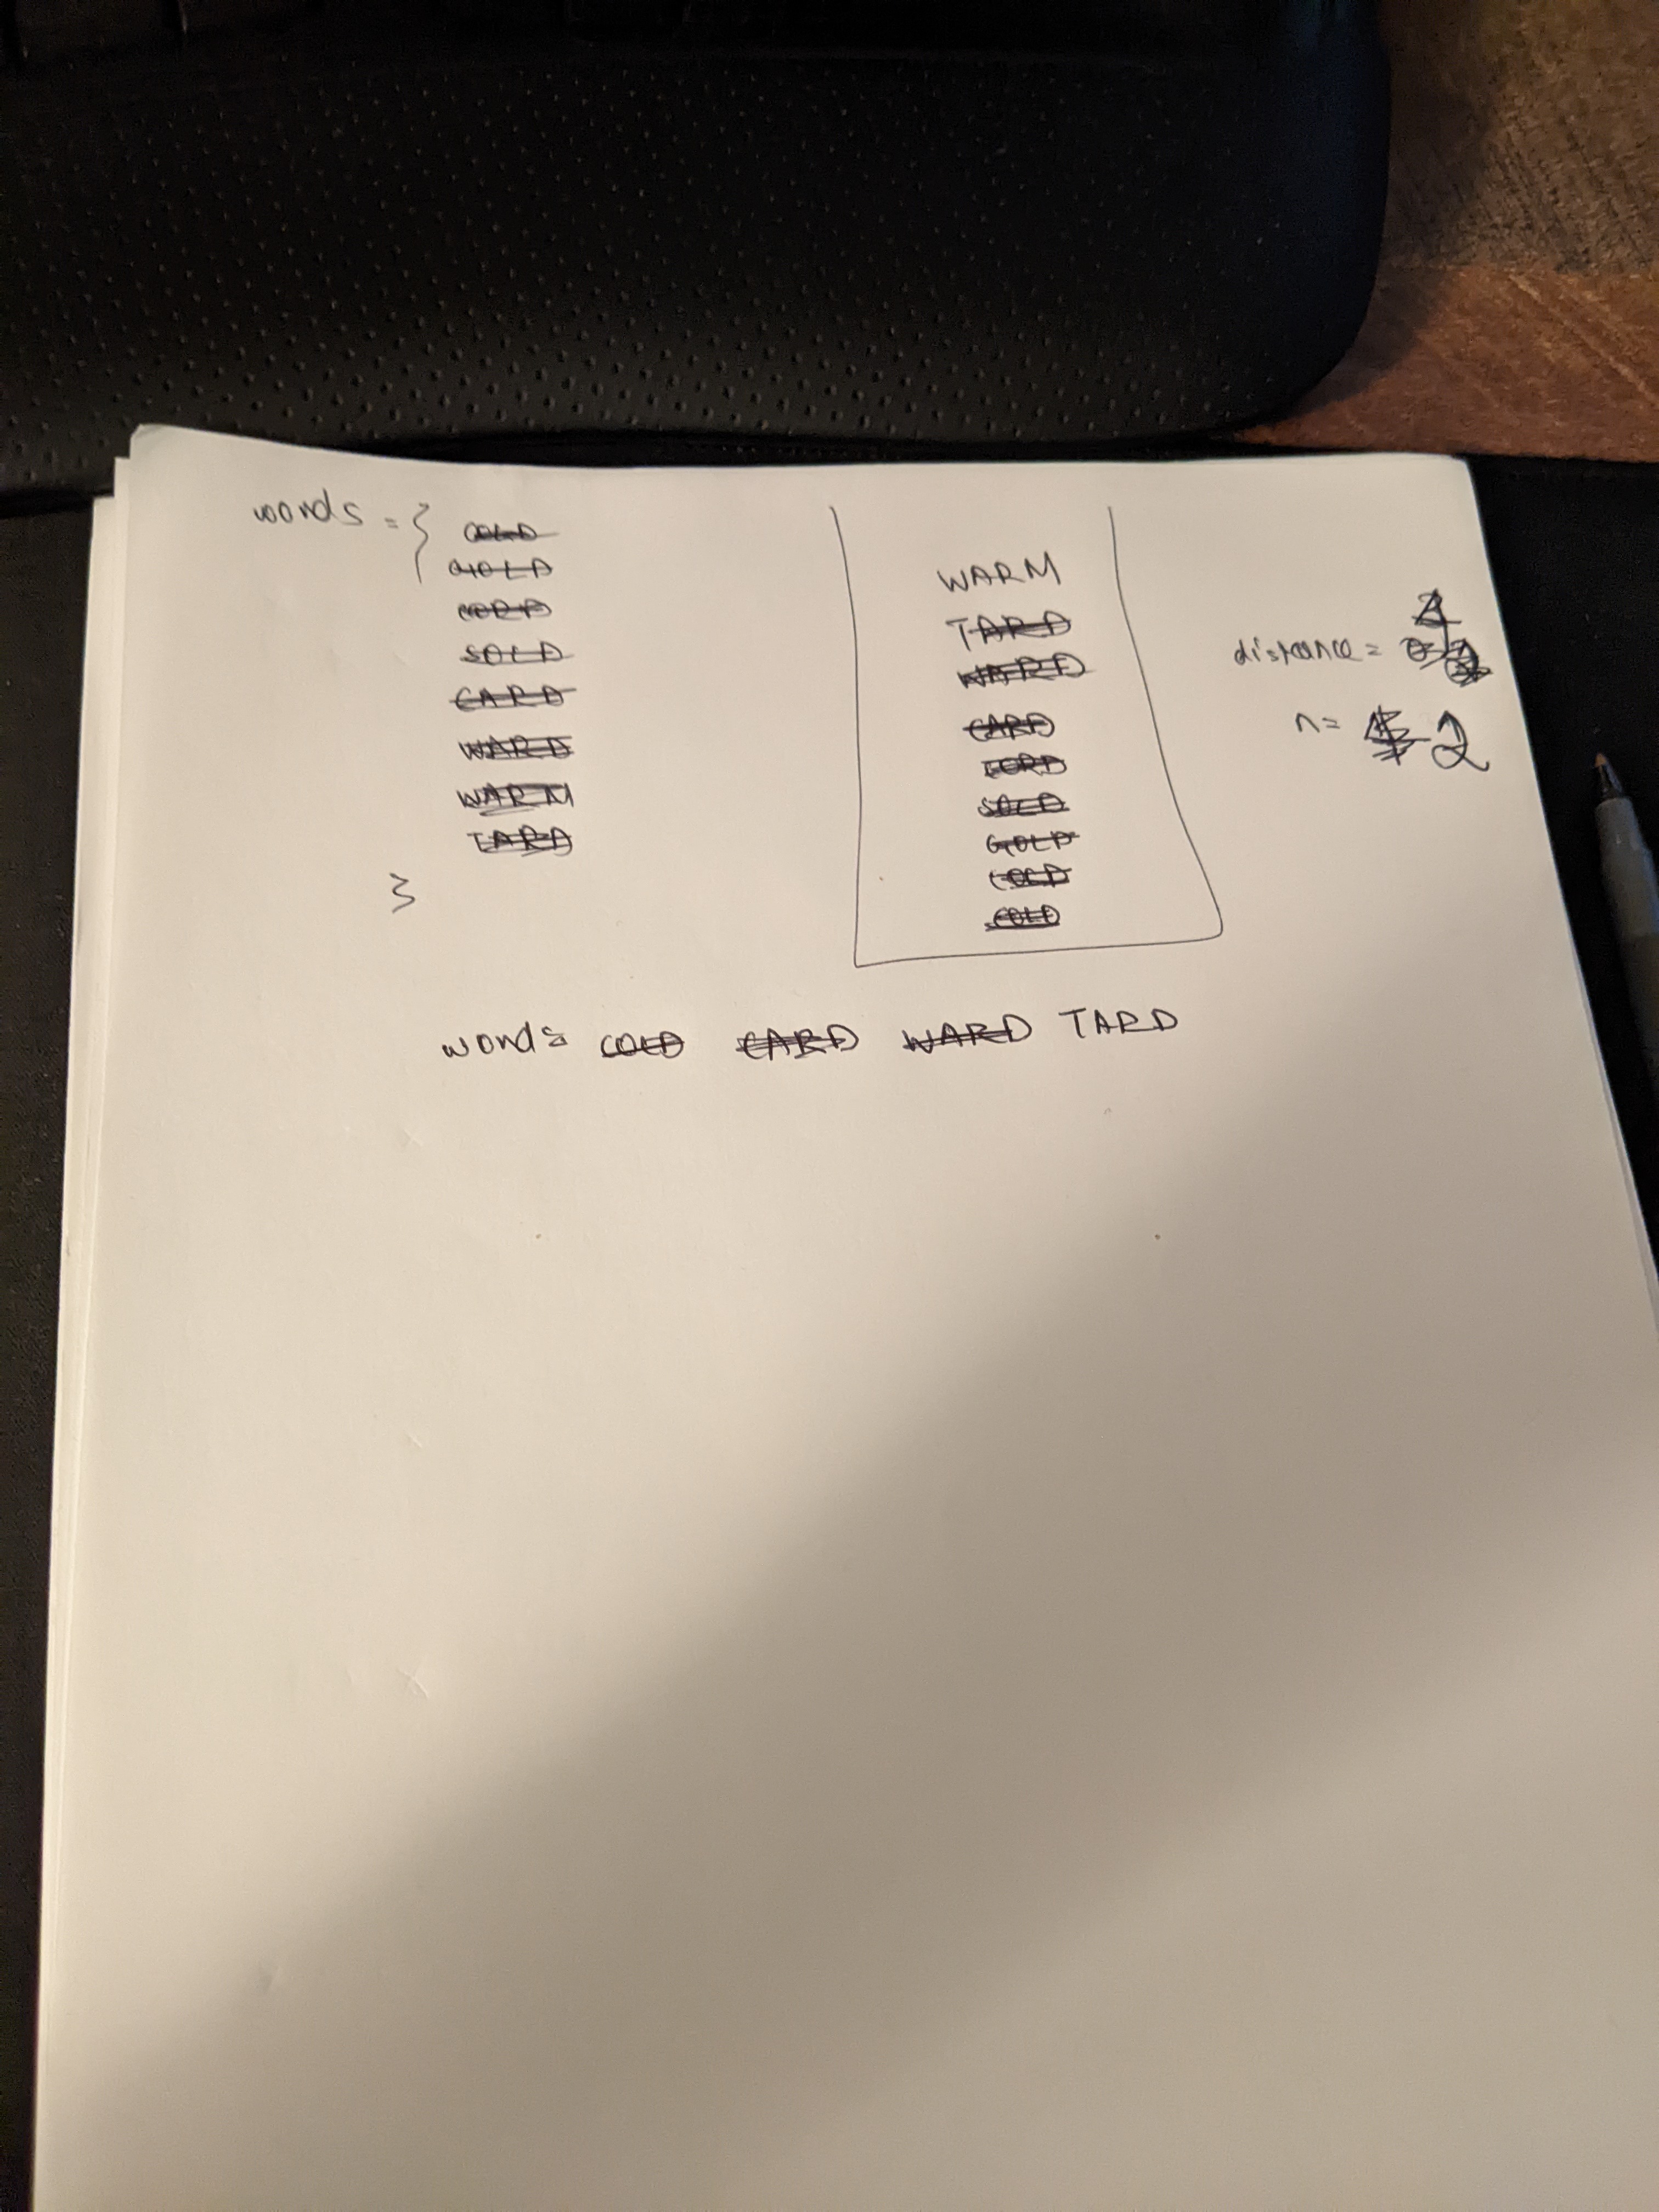 words = {
COLD
GOLD
CORD
SOLD
CARD
WARD
WARM
TARD
}
WARM
TARD
WARD
CARD
CORD
SOLD
GOLD
COLD
COLD
distance =
n = 2
word = COLD CARD WARD TARD